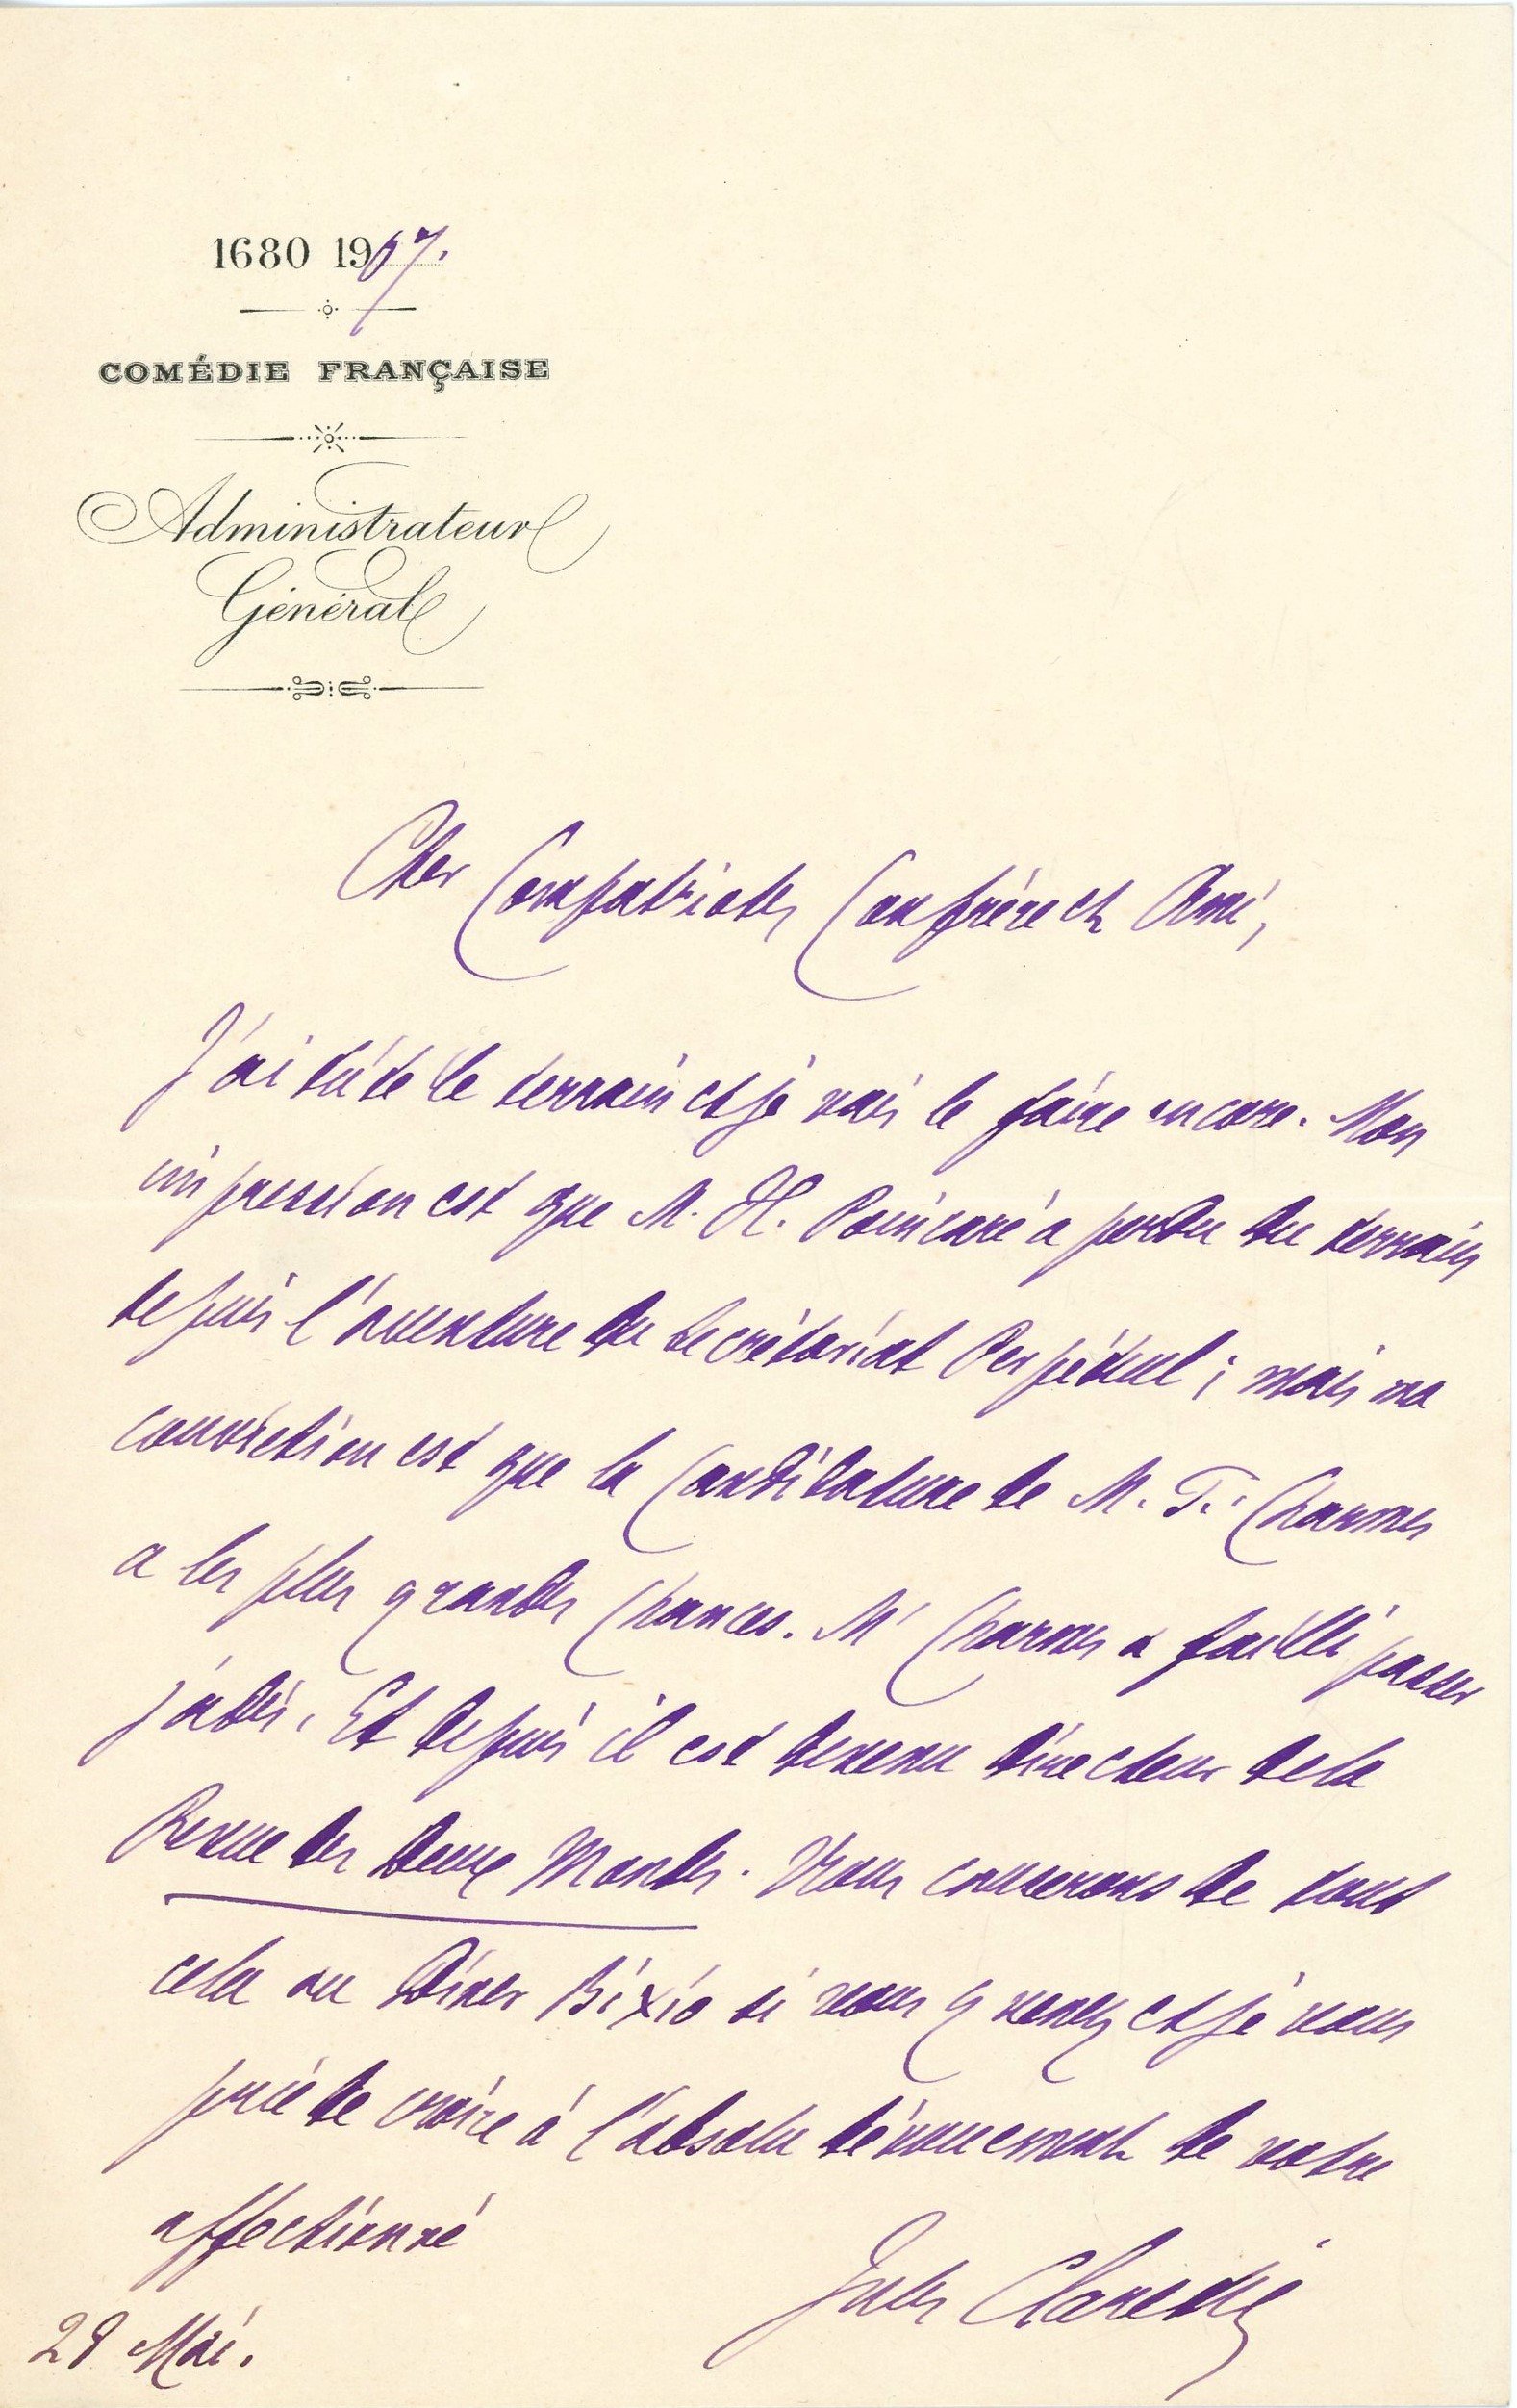 1680 1907.
COMÉDIE FRANÇAISE
Administrateur
Général
Cher Compatriote, Confrère et Ami,
J'ai tâté le terrain et je vais le faire encore. Mon
impression est que M. H. Poincaré a perdu du terrain
depuis l'aventure du Secrétariat Perpétuel ; mais ma
conviction est que la Candidature de M. F. Charmes
a les plus grandes Chances. Mr Charmes a failli passer
jadis. Et depuis il est devenu directeur de la
Revue des deux Mondes. Nous causerons de tout
cela au Diner Bixio si vous y venez et je vous
prie de croire à l'absolu dévouement de votre
affectionné
Jules Claretie
29 Mai.